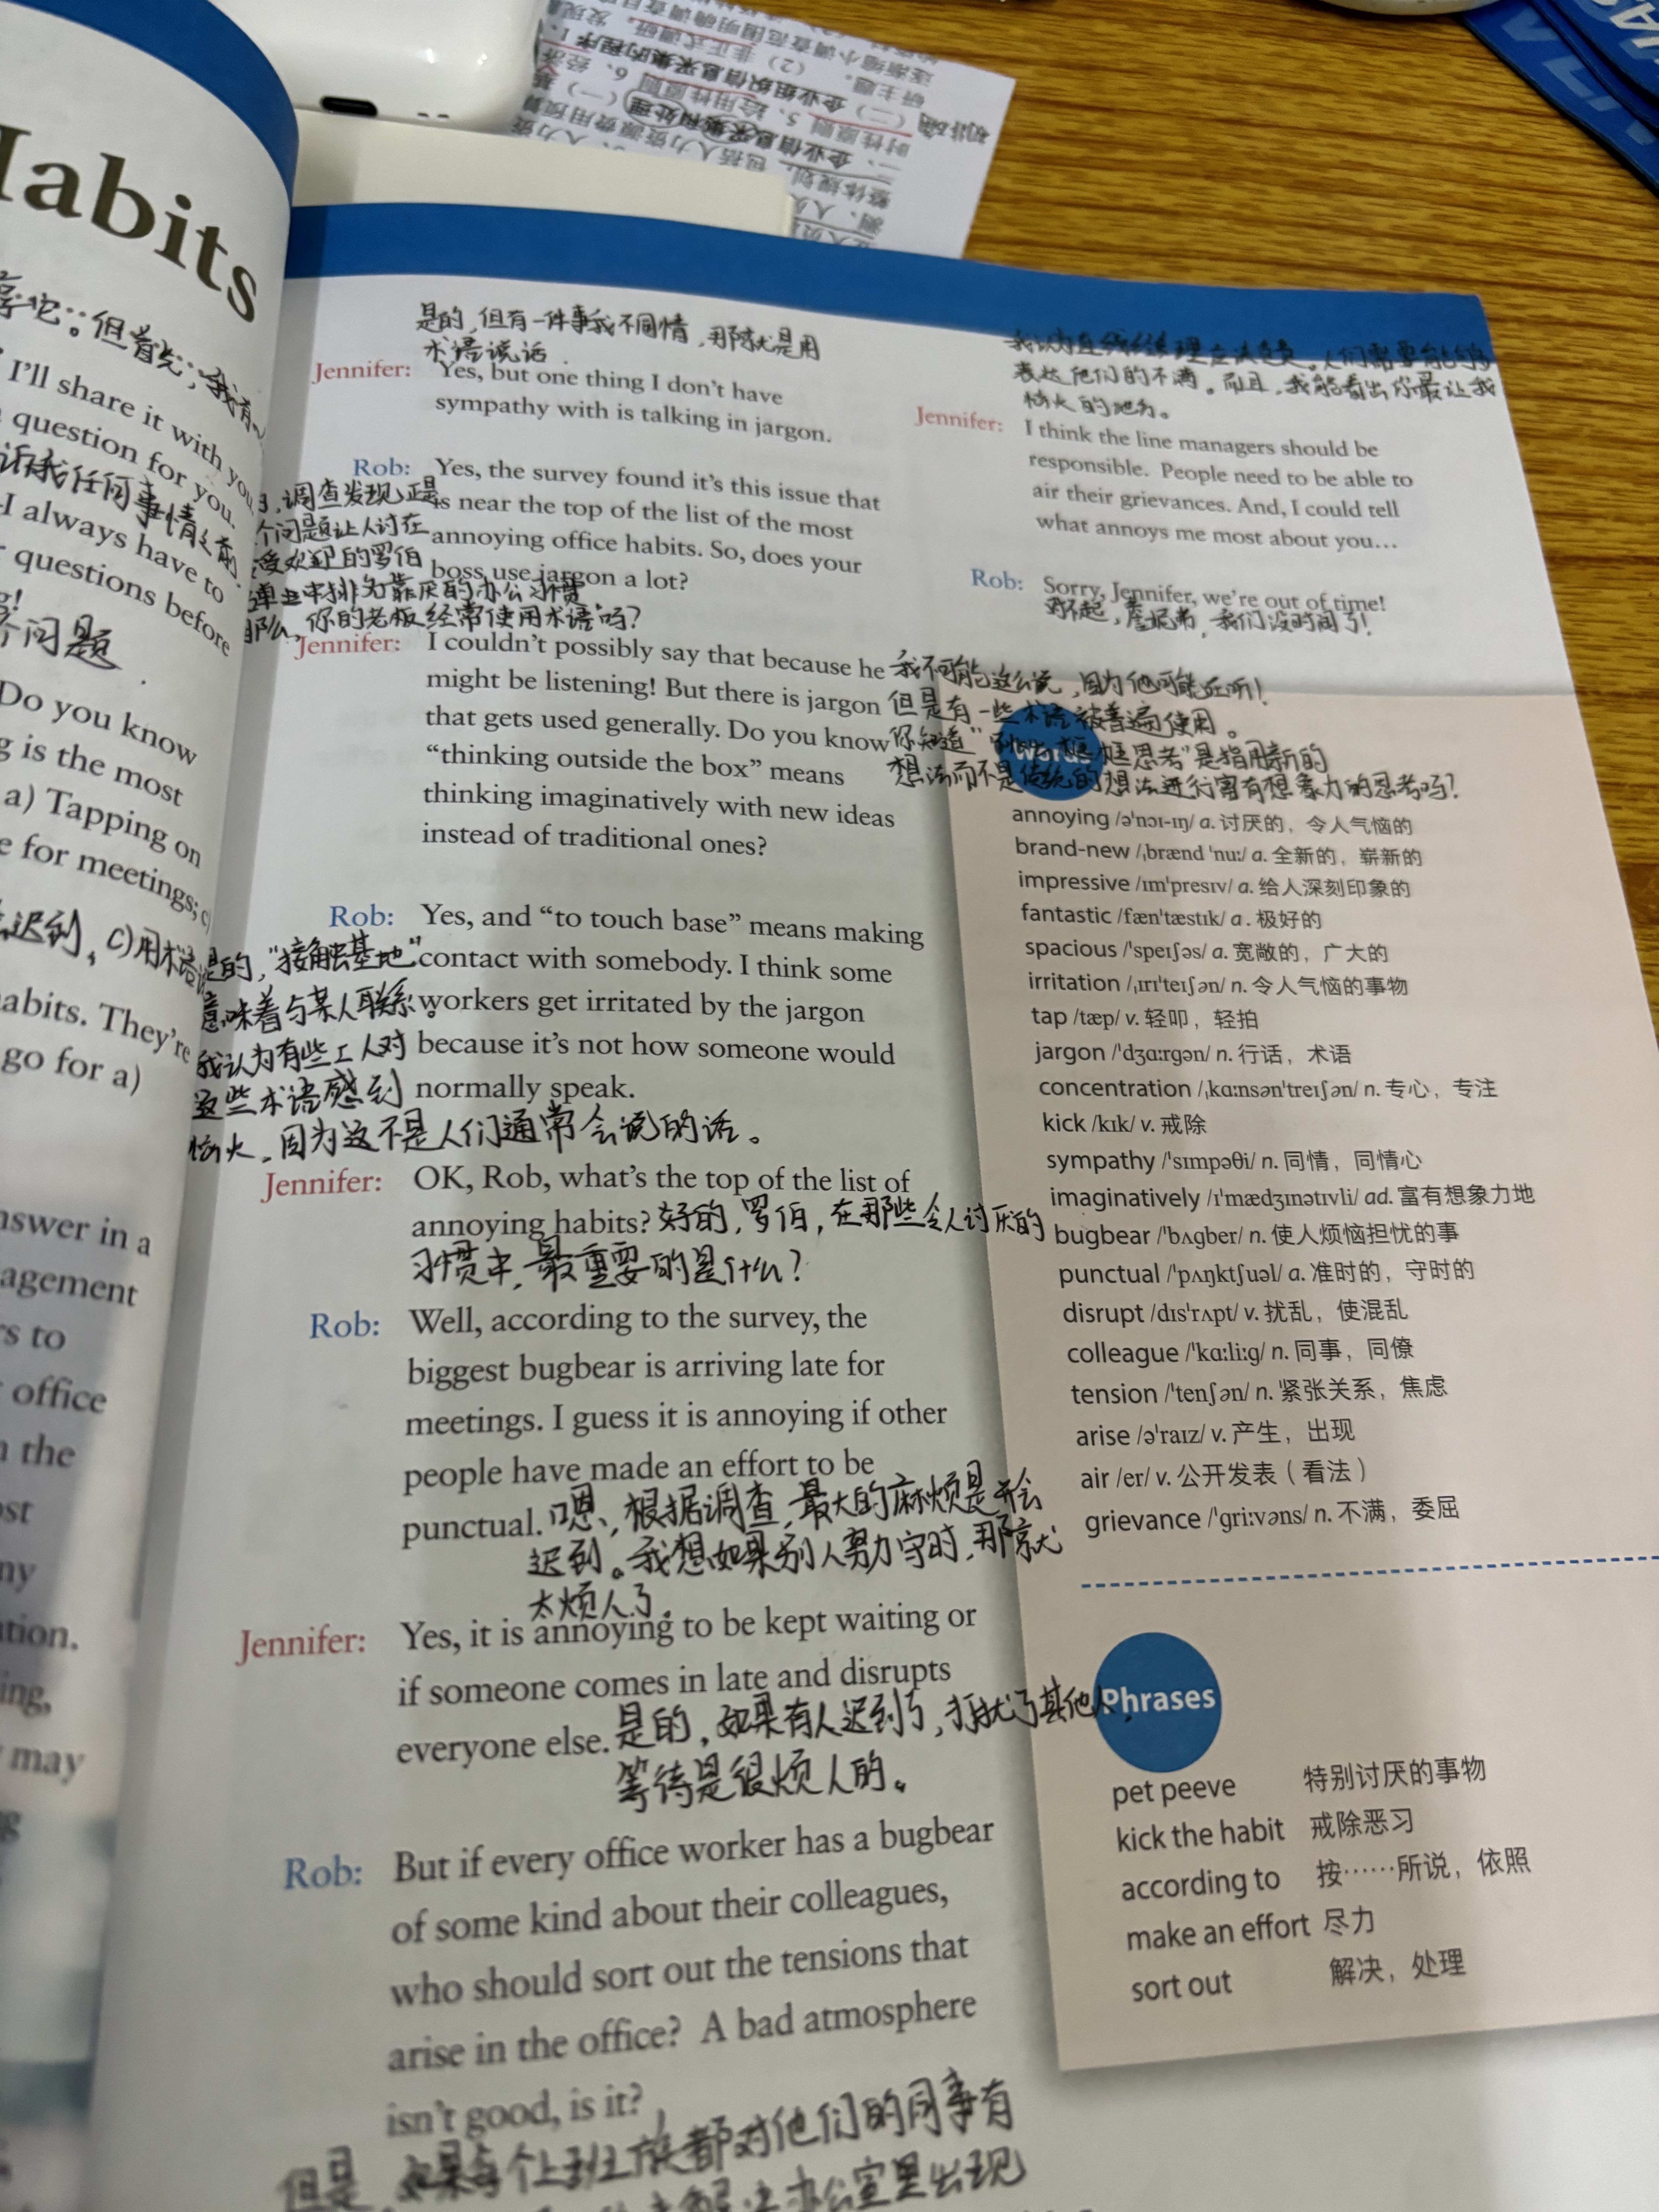 Habits
I'll share it with you
question for you.
I always have to
questions before
问题
Do you know
is the most
a) Tapping on
for meetings; c)
迟到, c)用术语
habits. They're
go for a)
answer in a
agement
rs to
office
n the
ost
ny
tion.
ing,
may
是的,但有一件事我不同情,那就是用
术语说话.
Jennifer: Yes, but one thing I don't have
sympathy with is talking in jargon.
Rob: Yes, the survey found it's this issue that
is near the top of the list of the most
annoying office habits. So, does your
boss use jargon a lot?
调查发现正是
个问题让人讨在
受欢迎的罗伯
单上中排为靠厌的办公习惯
那么,你的老板经常使用术语吗?
Jennifer: I couldn't possibly say that because he
might be listening! But there is jargon
that gets used generally. Do you know
“thinking outside the box” means
thinking imaginatively with new ideas
instead of traditional ones?
我不可能这么说,因为他可能在听!
但是有一些术语被普遍使用。
你知道“跳出框框思考”是指用新的
想法而不是传统的想法进行富有想象力的思考吗?
Rob: Yes, and “to touch base” means making
contact with somebody. I think some
workers get irritated by the jargon
because it's not how someone would
normally speak.
是的,“接触基地”
意味着与某人联系。
我认为有些工人对
这些术语感到
恼火,因为这不是人们通常会说的话。
Jennifer: OK, Rob, what's the top of the list of
annoying habits? 好的,罗伯,在那些令人讨厌的
习惯中,最重要的是什么?
Rob: Well, according to the survey, the
biggest bugbear is arriving late for
meetings. I guess it is annoying if other
people have made an effort to be
punctual. 嗯,根据调查,最大的麻烦是开会
迟到。我想如果别人努力守时,那就
太烦人了.
Jennifer: Yes, it is annoying to be kept waiting or
if someone comes in late and disrupts
everyone else. 是的,如果有人迟到了,打扰了其他人,
等待是很烦人的。
Rob: But if every office worker has a bugbear
of some kind about their colleagues,
who should sort out the tensions that
arise in the office? A bad atmosphere
isn't good, is it?
但是,如果每个上班族都对他们的同事有
解决办公室里出现
我认为直线经理应该负责。人们需要能够
表达他们的不满。而且,我能看出你最让我
恼火的地方。
Jennifer: I think the line managers should be
responsible. People need to be able to
air their grievances. And, I could tell
what annoys me most about you…
Rob: Sorry, Jennifer, we're out of time!
对不起,詹妮弗,我们没时间了!
Words
annoying /ə'nɔɪ-ɪŋ/ a. 讨厌的,令人气恼的
brand-new /ˌbrænd 'nuː/ a. 全新的,崭新的
impressive /ɪm'presɪv/ a. 给人深刻印象的
fantastic /fæn'tæstɪk/ a. 极好的
spacious /'speɪʃəs/ a. 宽敞的,广大的
irritation /ˌɪrɪ'teɪʃən/ n. 令人气恼的事物
tap /tæp/ v. 轻叩,轻拍
jargon /'dʒɑːrgən/ n. 行话,术语
concentration /ˌkɑːnsən'treɪʃən/ n. 专心,专注
kick /kɪk/ v. 戒除
sympathy /'sɪmpəθi/ n. 同情,同情心
imaginatively /ɪ'mædʒɪnətɪvli/ ad. 富有想象力地
bugbear /'bʌgber/ n. 使人烦恼担忧的事
punctual /'pʌŋktʃuəl/ a. 准时的,守时的
disrupt /dɪs'rʌpt/ v. 扰乱,使混乱
colleague /'kɑːliːg/ n. 同事,同僚
tension /'tenʃən/ n. 紧张关系,焦虑
arise /ə'raɪz/ v. 产生,出现
air /er/ v. 公开发表(看法)
grievance /'griːvəns/ n. 不满,委屈
Phrases
pet peeve 特别讨厌的事物
kick the habit 戒除恶习
according to 按……所说,依照
make an effort 尽力
sort out 解决,处理